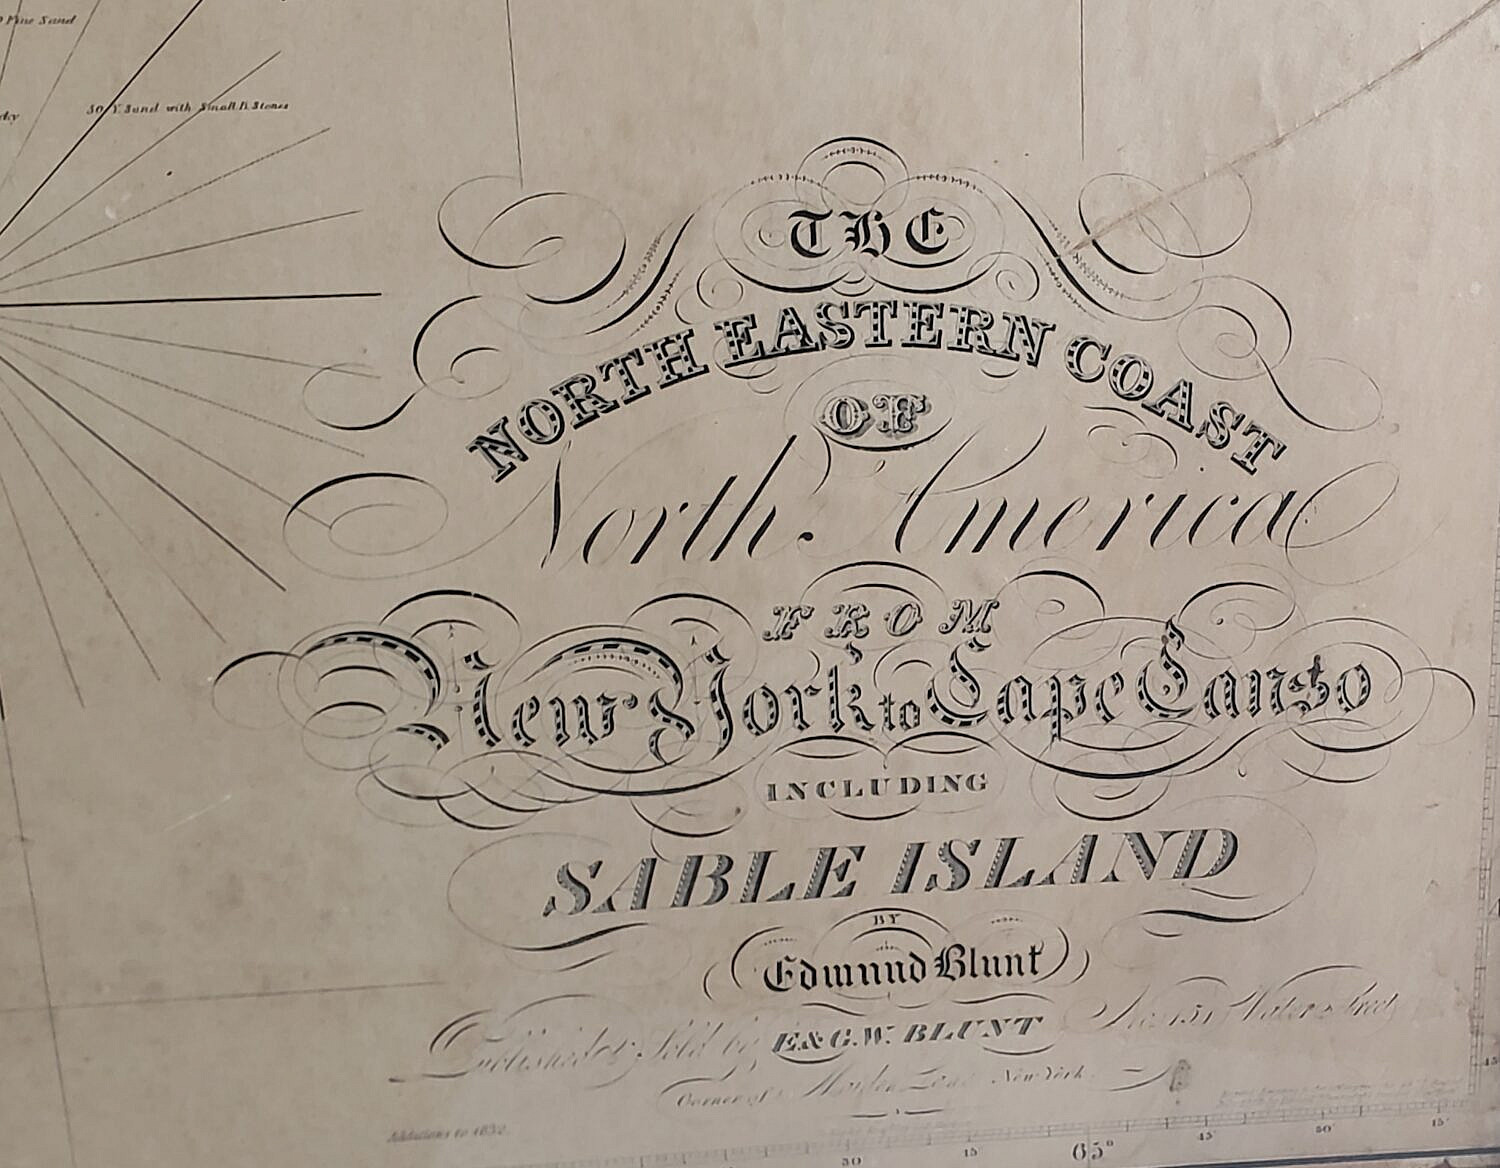 Fine Sand
50 Y. Sand with Small B. Stones
THE
NORTH EASTERN COAST
OF
North America
FROM
New York to Cape Canso
INCLUDING
SABLE ISLAND
BY
Edmund Blunt
Published & Sold by E & G.W. BLUNT No. 151 Water Street
Corner of Mayden Lane New York.
Additions to 1832.
30 15 65° 45' 30' 15'